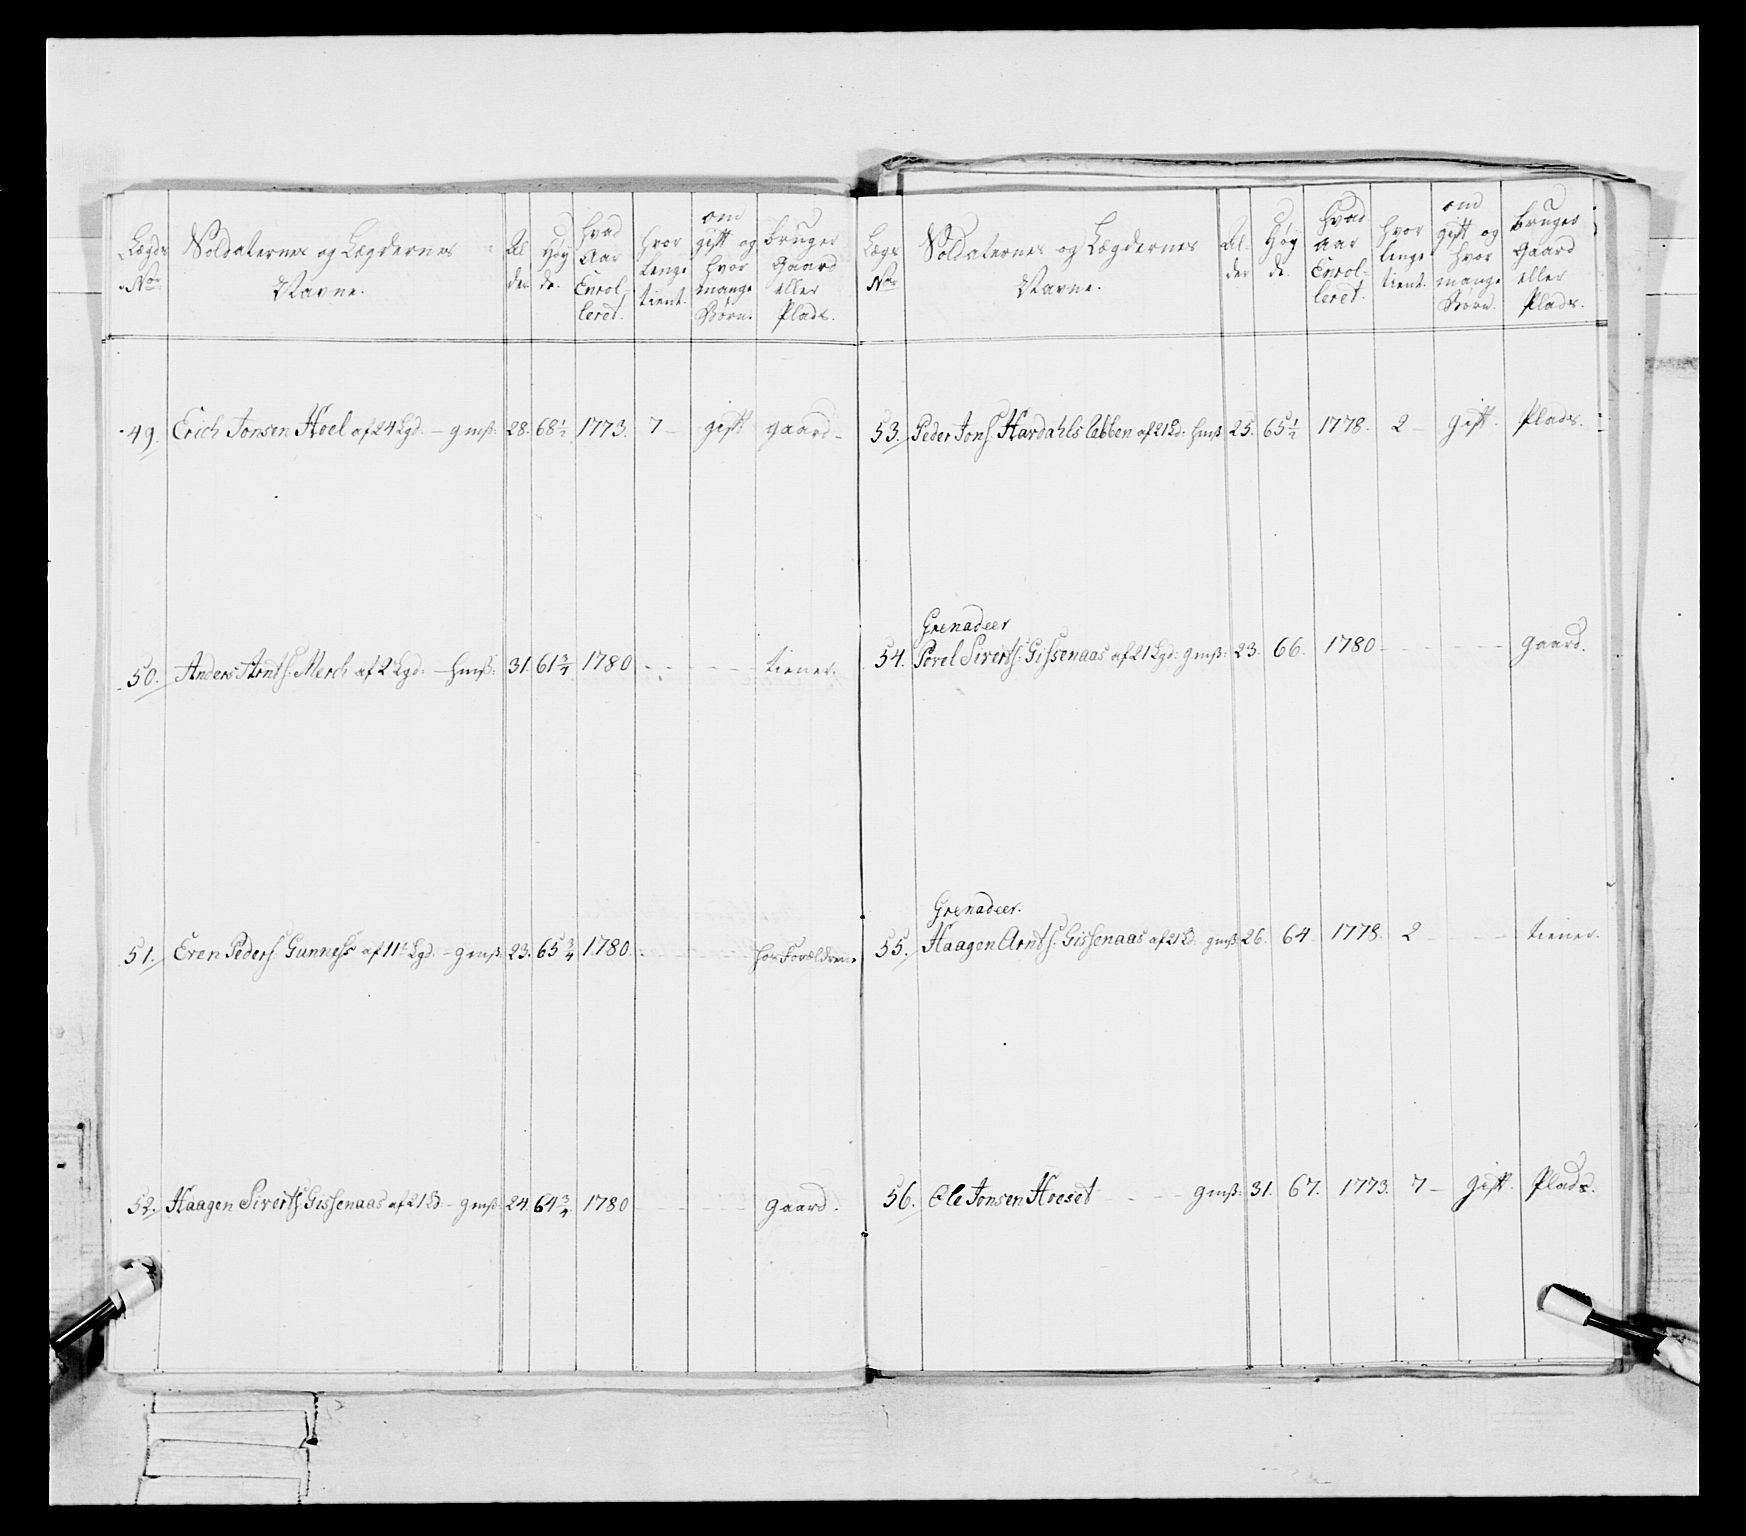 Lægds No. | Soldaternes og Lægdernes Navne. | Al der | Høy de. | hvad Aar Enrol leret. | hvor lenge tient. | om gift og hvor mange Børn. | bruger Gaard eller Plads.
49. Erich Jonsen Hoel af 24 Lgd. – gmß: 28. 68 1/2 1773. 7 – gift gaard –
50. Anders Arntſ: Merch af 2 Lgd: – hmß: 31. 61 3/4 1780 tiener.
51. Even Pederſ. Gunneſs af 11te Lgd. – gmß. 23. 65 3/4 1780. hos Forældrene
52. Haagen Sivertſ: Gisſenaas af 21 Ld. – gmß: 24. 64 3/4 1780 gaard.
Lægs No. | Soldaternes og Lægdernes Navne. | Al- der | Høy de. | hvad Aar Enrol- leret. | hvor lenge tient. | om gift og hvor mange Børn. | bruger Gaard eller Plads.
53. Peder Jonſ. Hardahls Ebben af 21 Ld: hmß 25. 65 1/2 1778. 2 – gift. Plads.
Grenadeer
54. Povel Sivertſ: Gisſenaas af 21 Lgd: gmß: 23. 66. 1780 – gaard.
Grenadeer.
55. Haagen Arndſ: Gisſenaas af 21 Ld. gmß: 26. 64 1778. 2 tiener.
56. Ole Jonsen Hoeset gmß: 31. 67. 1773. 7 – gift. Plads.